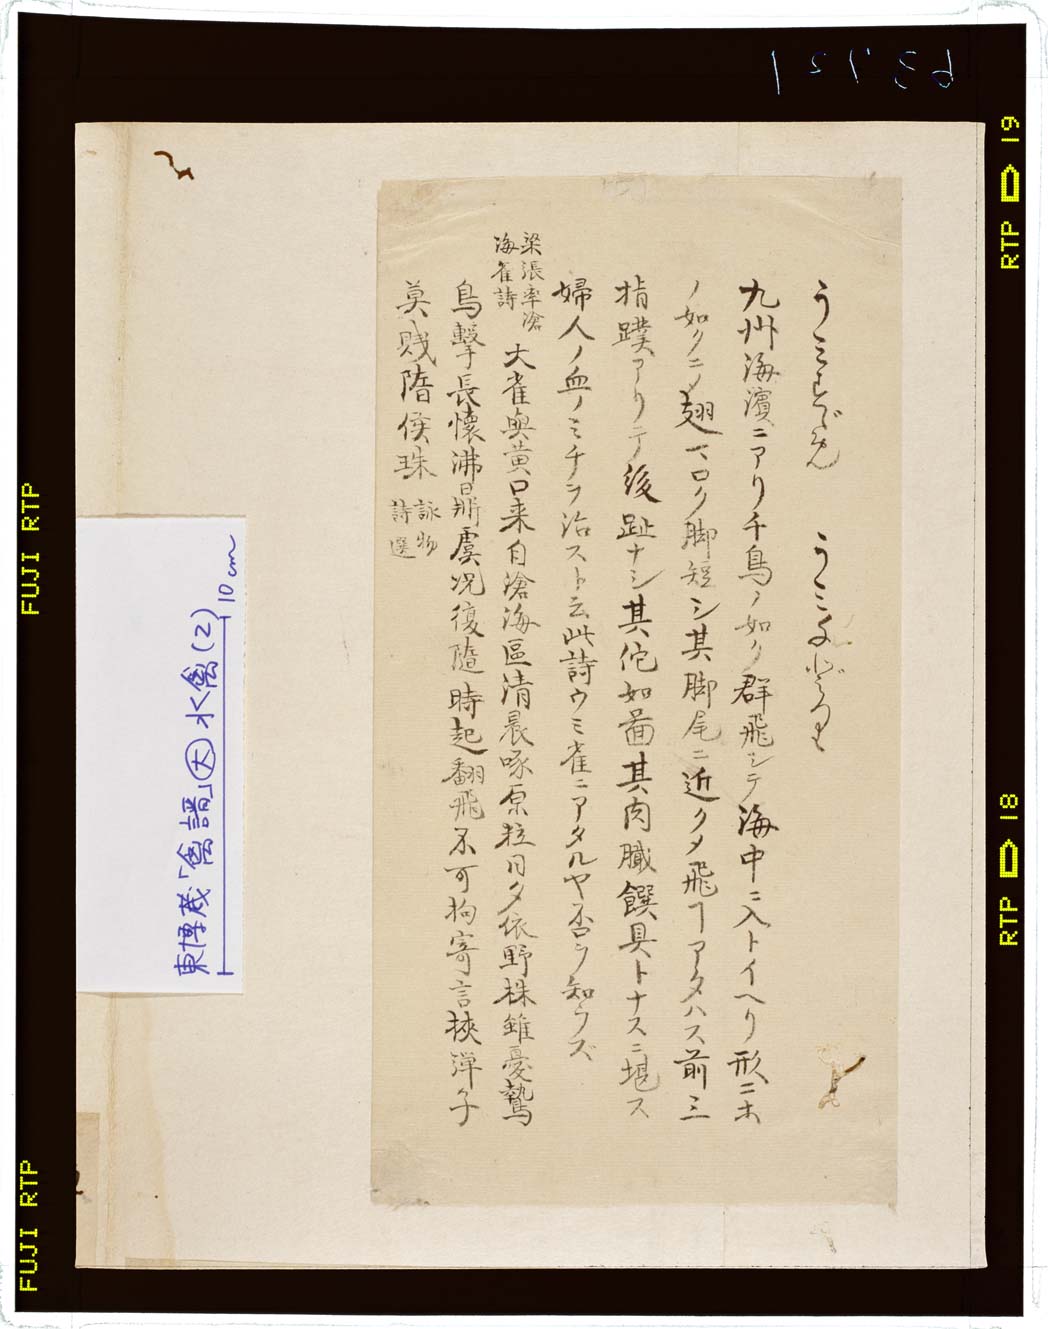 うみすゞめ　うみちどり
九州海濱ニアリ千鳥ノ如ク群飛シテ海中ニ入トイヘリ形ニホ
ノ如クニ〆翅マロク脚短シ其脚尾ニ近ク〆飛ヿアタハス前三
指蹼アリテ後趾ナシ其佗如圖其肉臓饌具トナスニ堪ス
婦人ノ血ノミチヲ治スト云此詩ウミ雀ニアタルヤ否ヲ知ラズ
梁張率滄
海雀詩
大雀與黄口来自滄海區清晨啄原粒日夕依野株雖憂鷙
鳥撃長懐沸鼎虞况復隨時起翻飛不可拘寄言挾弾子
莫賎隋侯珠
詠物
詩選
東博蔵「禽譜」大 水禽(2)
10cm
FUJI RTP
FUJI RTP
RTP 19
RTP 18